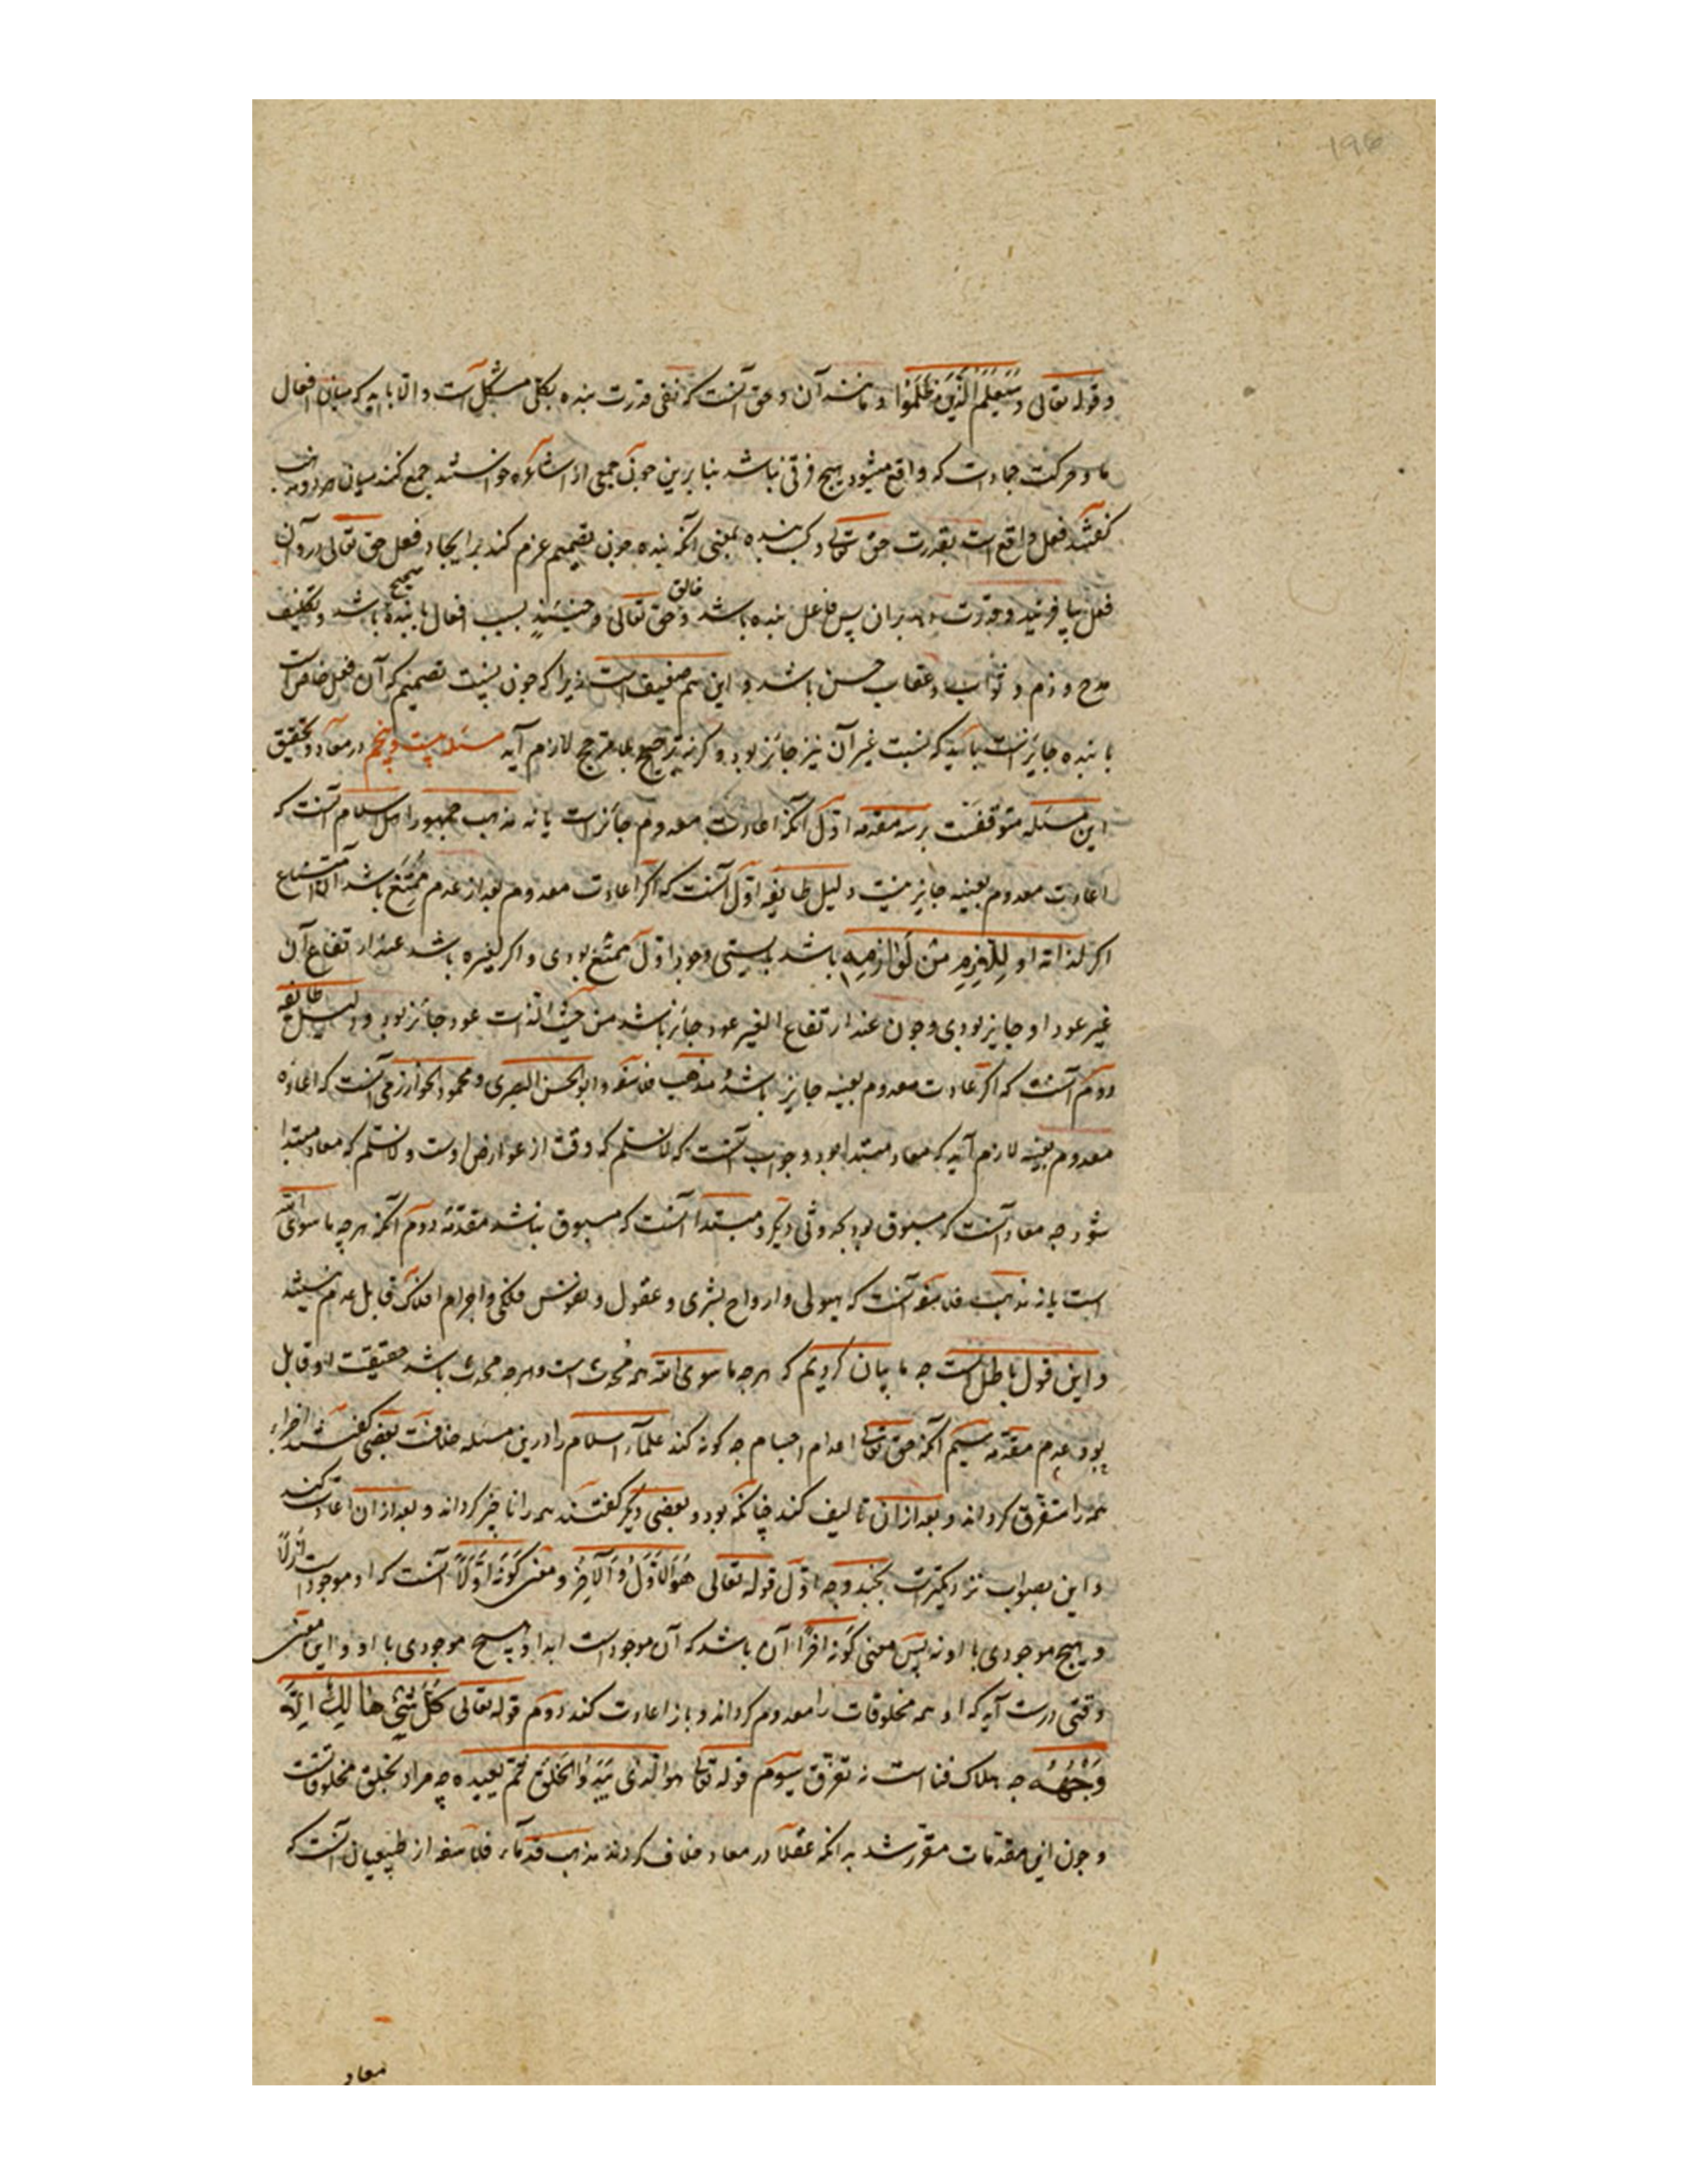 ۱۹۶
و قوله تعالی وسَیَعْلَمُ الَّذینَ ظَلَمُوا و مانند آن و حق آنست که نفی قدرت بنده بکلی مشکل است و الا باید که میان افعال
ما و حرکت جمادات که واقع میشود هیچ فرقی نباشد بنابرین چون جمعی از اشاعره خواستند جمع کنند میان هر دو مذهب
گفتند فعل واقع است بقدرت حق تعالی و کسب بنده بمعنی آنکه بنده چون تصمیم عزم کند بر ایجاد فعل حق تعالی در وی آن
فعل بیافریند و قدرت دهد بر آن پس فاعل بنده باشد و خالق حق تعالی و حینئذٍ نسبت افعال با بنده صحیح باشد و تکلیف
مدح و ذم و ثواب و عقاب حسن باشد و این هم ضعیف است زیرا که چون نسبت تصمیم که آن فعل خاص است
با بنده جایز است باید که نسبت غیر آن نیز جائز بود و گرنه ترجیح بلا مرجح لازم آید مسئله بیست و پنجم در معاد و تحقیق
این مسئله متوقفست بر سه مقدمه اول آنکه اعادت معدوم جائز است یا نه مذهب جمهور اهل اسلام آنست که
اعادت معدوم بعینه جایز نیست دلیل طایفه اول آنست که اگر اعادت معدوم بعد از عدم ممتنع باشد آن امتناع
اگر لذاته او لِلازِمٍ مِنْ لَوازِمِه باشد بایستی وجود اول ممتنع بودی و اگر لغیره باشد عند ارتفاع آن
غیر عود او جایز بودی و چون عند ارتفاع الغیر عود جائز باشد من حیث الذات عود جائز بود و دلیل طایفه
دوم آنست که اگر اعادت معدوم بعینه جایز باشد و مذهب فلاسفه و ابو الحسن البصری و محمود الخوارزمی آنست که اعاده
معدوم بعینه لازم آید که معاد مبتدا بود و جواب آنست که لا نسلم که وقت از عوارض اوست و لا نسلم که معاد مبتدا
شود چه معاد آنست که مسبوق بود بحدوثی دیگر و مبتدا آنست که مسبوق نباشد مقدمه دوم آنکه هر چه ما سوی الله
است یا نه مذهب فلاسفه آنست که هیولی و ارواح بشری و عقول و نفوس فلکی و اجرام افلاک قابل عدم نیستند
و این قول باطل است چه ما بیان کردیم که هر چه ما سوی الله هم محدث است و هر چه محدث باشد حقیقت او قابل
بود عدم مقدمه سیم آنکه حق تعالی اعدام اجسام چه گونه کند علماء اسلام را درین مسئله خلافست بعضی گفتند اجزاء
همه را متفرق گرداند و بعد از آن تالیف کند چنانکه بود و بعضی دیگر گفتند همه را ناچیز گرداند و بعد از آن اعادت کند
و این بصواب نزدیکترست بچند وجه اول قوله تعالی هُوَ الأَوَّلُ وَ الآخِرُ و معنی کَونُه اَوَّلاً آنست که او موجود است ازلاً
و هیچ موجودی با او نه پس معنی کونه آخرًا آن باشد که آن موجود است ابدا و هیچ موجودی با او و این معنی
وقتی درست آید که او همه مخلوقات را معدوم گرداند و باز اعادت کند دوم قوله تعالی کُلُّ شَیءٍ هالِكٌ اِلّا
وَجْهَهُ چه هلاک فنا است نه تفرق سیوم قوله تعالی هو الذی یَبْدَؤُا الْخَلْقَ ثُمّ یعیده چه مراد بخلق مخلوقاتست
و چون این مقدمات مقرر شد بدانکه عقلا در معاد خلاف کردند مذهب قدماء فلاسفه از طبیعیان آنست که
معاد